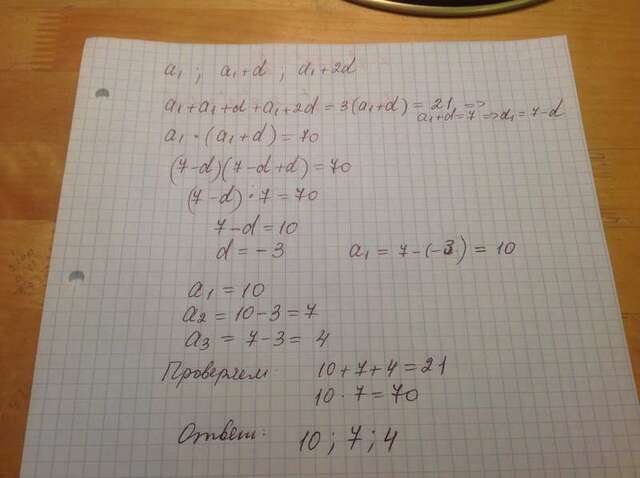 a₁ ; a₁+d ; a₁+2d
a₁+a₁+d+a₁+2d=3(a₁+d)=21 =>
a₁+d=7 => a₁=7-d
a₁·(a₁+d)=70
(7-d)(7-d+d)=70
(7-d)·7=70
7-d=10
d=-3 a₁=7-(-3)=10
a₁=10
a₂=10-3=7
a₃=7-3=4
Проверяем: 10+7+4=21
10·7=70
Ответ: 10; 7; 4